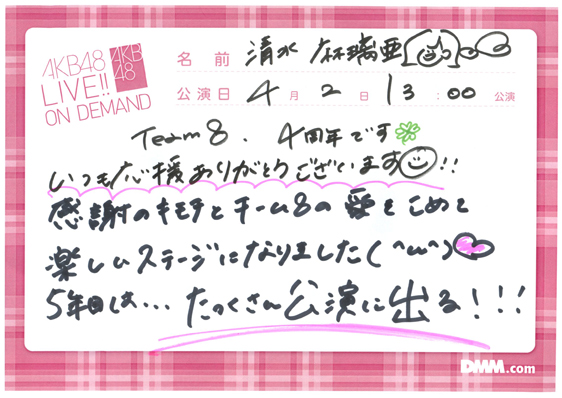 AKB48
LIVE!!
ON DEMAND
AKB
48
名前 清水 麻璃亜
公演日 4月2日 13:00公演
Team8、4周年です
いつも応援ありがとうございます!!
感謝のキモチとチーム8の愛をこめて
楽しいステージになりました(^ω^)
5年目は…たっくさん公演に出る!!!
DMM.com